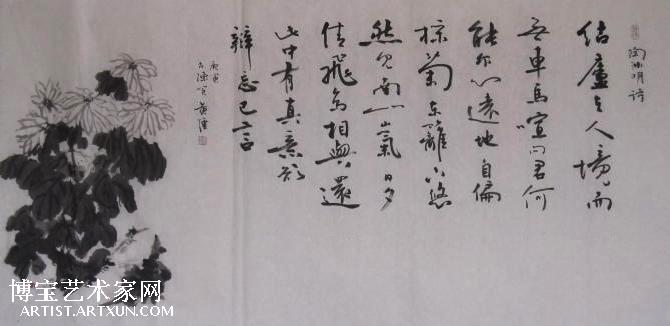 陶渊明诗
结廬在人境而
无車馬喧问君何
能尔心遠地自偏
採菊东籬下悠
然见南山山氣日夕
佳飛鳥相與還
此中有真意欲
辩忘已言
庚寅
博宝艺术家网
ARTIST.ARTXUN.COM